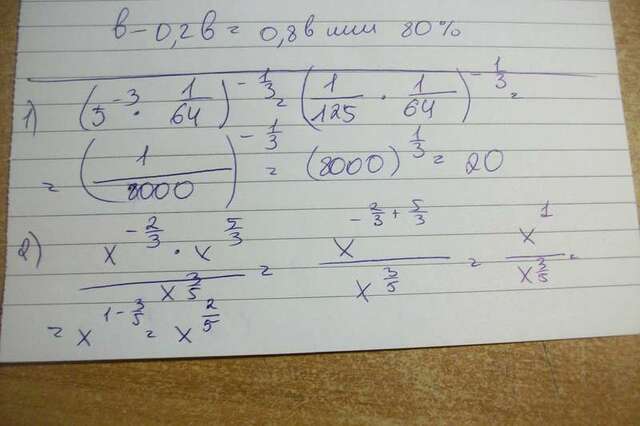 b - 0,2b = 0,8b или 80%
1) (5^{-3} · 1/64)^{-1/3} = (1/125 · 1/64)^{-1/3} =
= (1/8000)^{-1/3} = (8000)^{1/3} = 20
2) x^{-2/3} · x^{5/3} / x^{3/5} = x^{-2/3 + 5/3} / x^{3/5} = x^1 / x^{3/5} =
= x^{1 - 3/5} = x^{2/5}